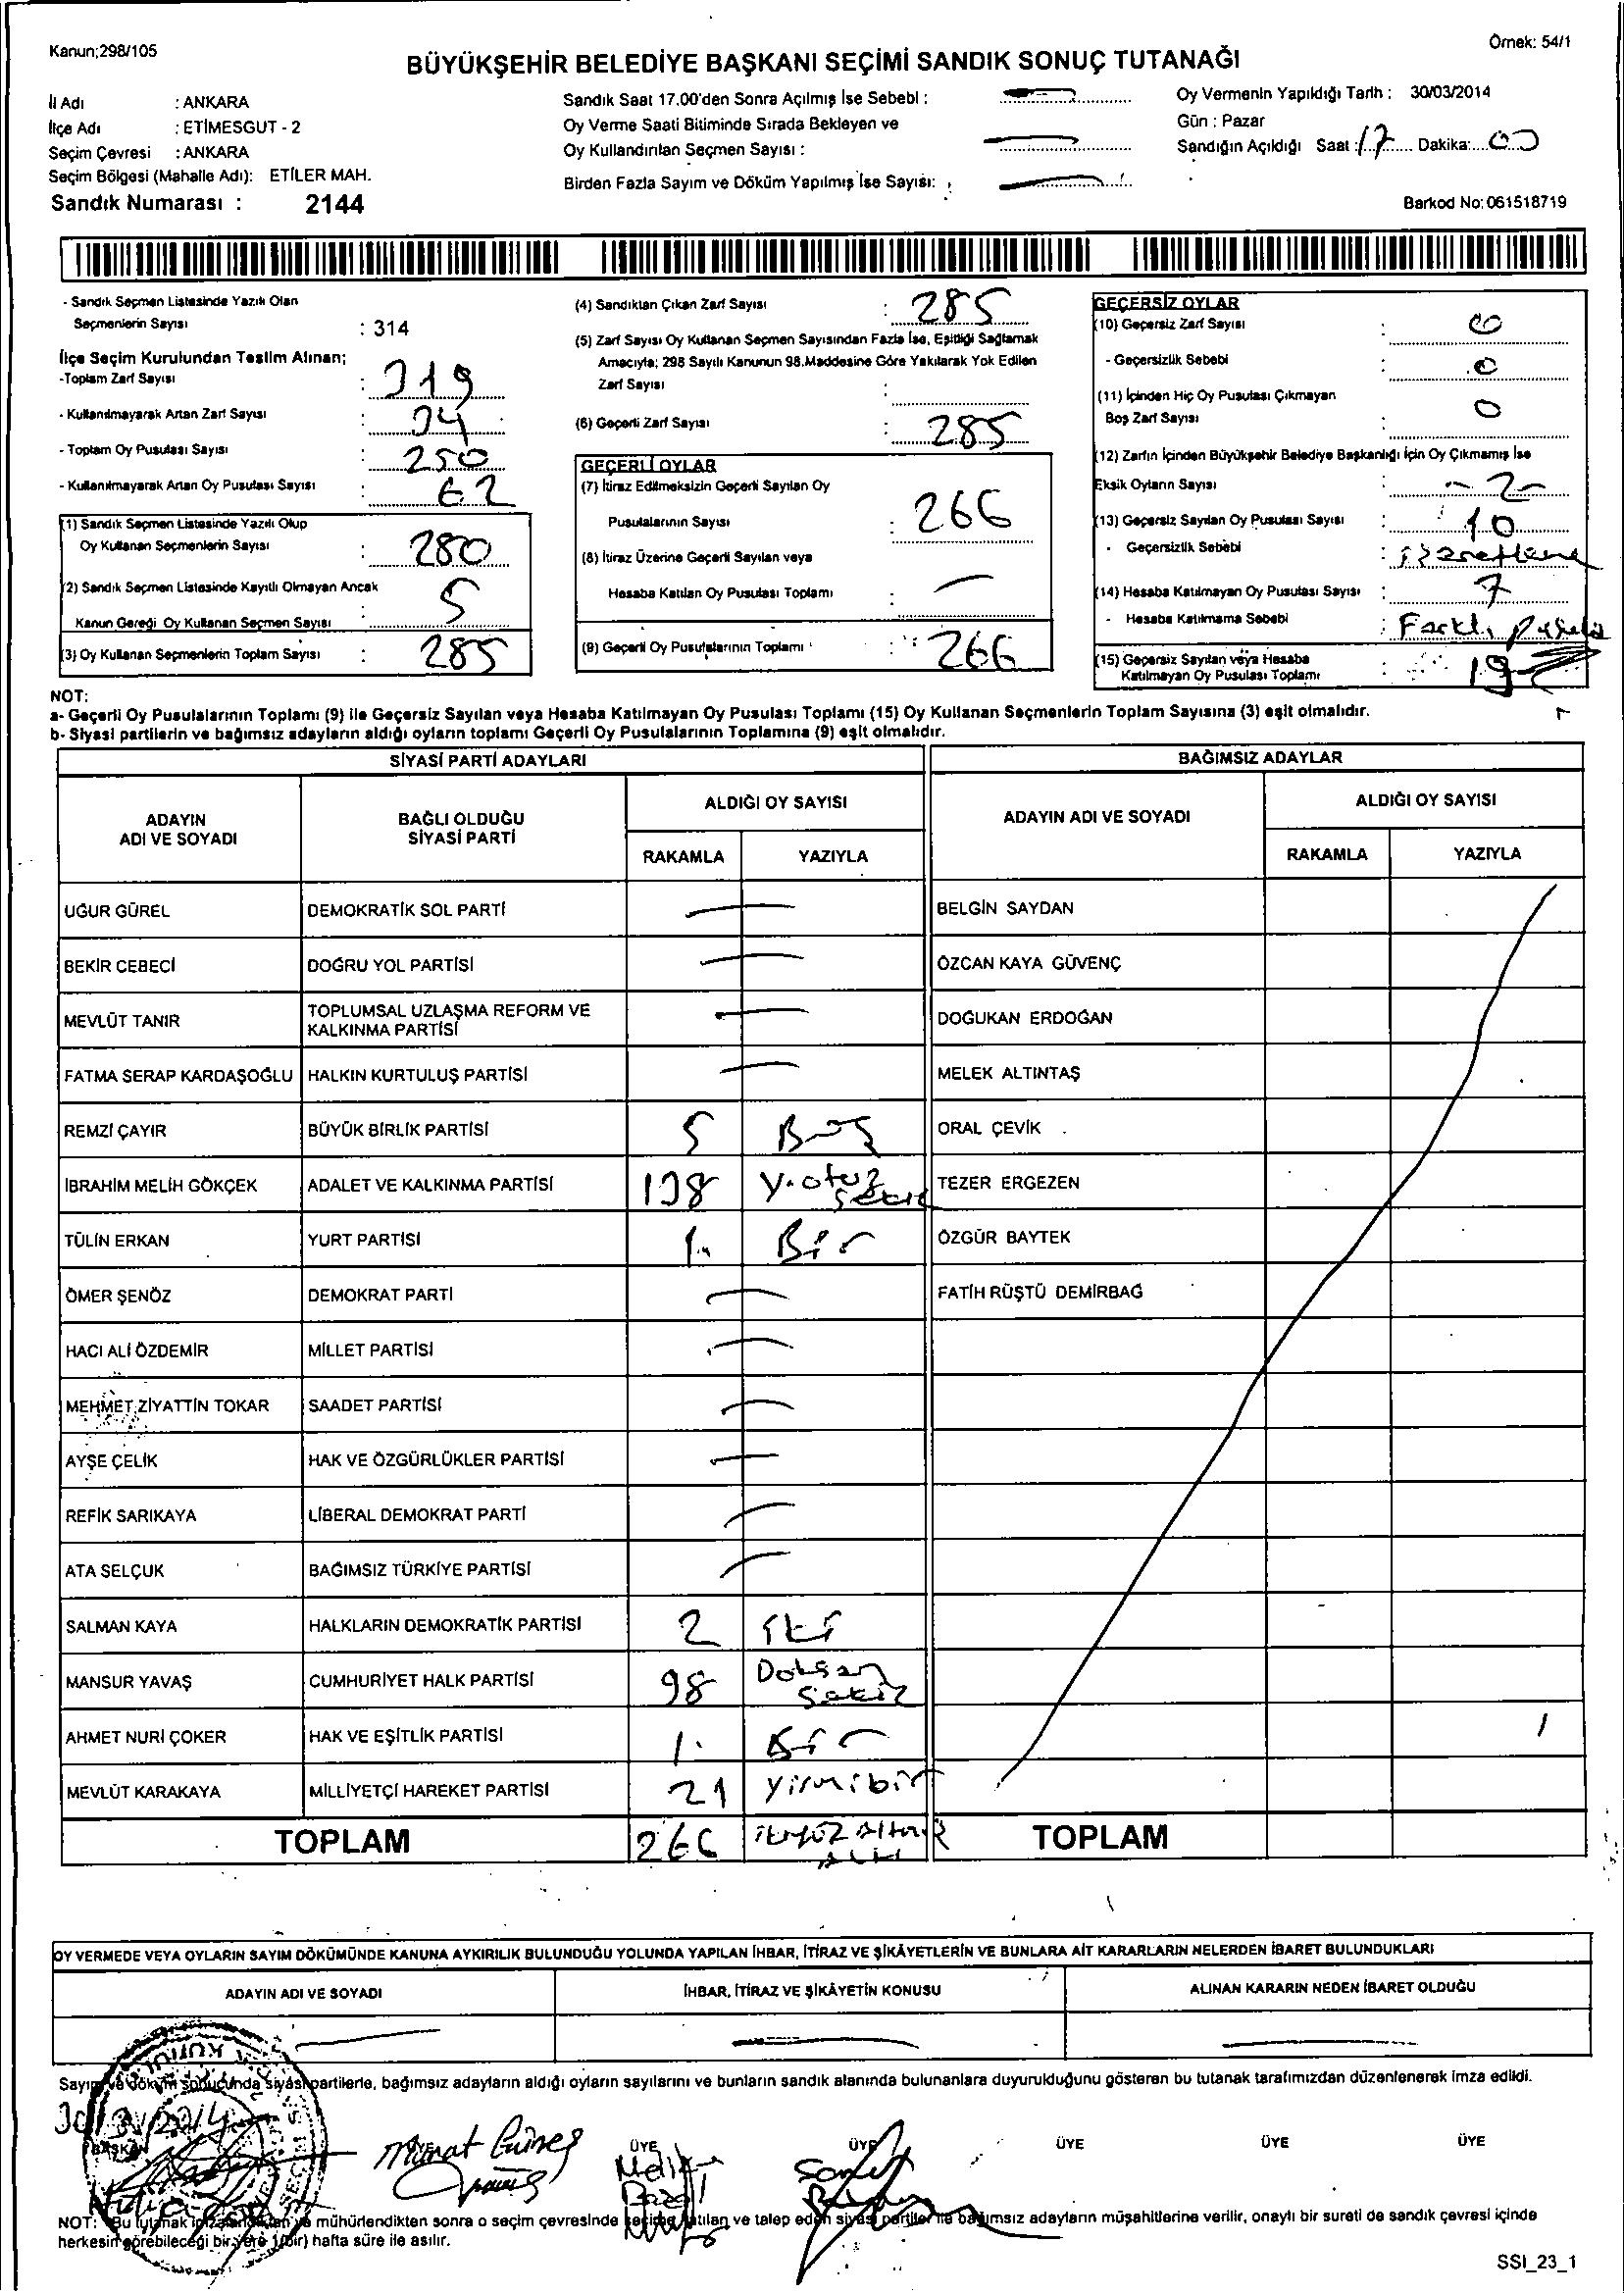 Kanun;298/105
Örnek: 54/1
BÜYÜKŞEHİR BELEDİYE BAŞKANI SEÇİMİ SANDIK SONUÇ TUTANAĞI
İl Adı : ANKARA
İlçe Adı : ETİMESGUT - 2
Seçim Çevresi : ANKARA
Seçim Bölgesi (Mahalle Adı): ETİLER MAH.
Sandık Numarası : 2144
Sandık Saat 17.00'den Sonra Açılmış İse Sebebi :
Oy Verme Saati Bitiminde Sırada Bekleyen ve
Oy Kullandırılan Seçmen Sayısı :
Birden Fazla Sayım ve Döküm Yapılmış İse Sayısı:
Oy Vermenin Yapıldığı Tarih : 30/03/2014
Gün : Pazar
Sandığın Açıldığı Saat : 17 Dakika: 00
Barkod No: 061518719
- Sandık Seçmen Listesinde Yazılı Olan
Seçmenlerin Sayısı : 314
İlçe Seçim Kurulundan Teslim Alınan;
-Toplam Zarf Sayısı : 319
- Kullanılmayarak Artan Zarf Sayısı : 34
- Toplam Oy Pusulası Sayısı : 250
- Kullanılmayarak Artan Oy Pusulası Sayısı : 62
(1) Sandık Seçmen Listesinde Yazılı Olup
Oy Kullanan Seçmenlerin Sayısı : 280
(2) Sandık Seçmen Listesinde Kayıtlı Olmayan Ancak
Kanun Gereği Oy Kullanan Seçmen Sayısı : 5
(3) Oy Kullanan Seçmenlerin Toplam Sayısı : 285
(4) Sandıktan Çıkan Zarf Sayısı : 285
(5) Zarf Sayısı Oy Kullanan Seçmen Sayısından Fazla İse, Eşitliği Sağlamak
Amacıyla; 298 Sayılı Kanunun 98.Maddesine Göre Yakılarak Yok Edilen
Zarf Sayısı :
(6) Geçerli Zarf Sayısı : 285
GEÇERLİ OYLAR
(7) İtiraz Edilmeksizin Geçerli Sayılan Oy
Pusulalarının Sayısı : 266
(8) İtiraz Üzerine Geçerli Sayılan veya
Hesaba Katılan Oy Pusulası Toplamı : —
(9) Geçerli Oy Pusulalarının Toplamı : 266
GEÇERSİZ OYLAR
(10) Geçersiz Zarf Sayısı : 0
- Geçersizlik Sebebi : 0
(11) İçinden Hiç Oy Pusulası Çıkmayan
Boş Zarf Sayısı : 0
(12) Zarfın İçinden Büyükşehir Belediye Başkanlığı İçin Oy Çıkmamış İse
Eksik Oyların Sayısı : - 2 -
(13) Geçersiz Sayılan Oy Pusulası Sayısı : 10
- Geçersizlik Sebebi :
(14) Hesaba Katılmayan Oy Pusulası Sayısı : 7
- Hesaba Katılmama Sebebi : Farklı pusula
(15) Geçersiz Sayılan veya Hesaba
Katılmayan Oy Pusulası Toplamı : 19
NOT:
a- Geçerli Oy Pusulalarının Toplamı (9) ile Geçersiz Sayılan veya Hesaba Katılmayan Oy Pusulası Toplamı (15) Oy Kullanan Seçmenlerin Toplam Sayısına (3) eşit olmalıdır.
b- Siyasi partilerin ve bağımsız adayların aldığı oyların toplamı Geçerli Oy Pusulalarının Toplamına (9) eşit olmalıdır.
SİYASİ PARTİ ADAYLARI
ADAYIN ADI VE SOYADI
BAĞLI OLDUĞU SİYASİ PARTİ
ALDIĞI OY SAYISI
RAKAMLA YAZIYLA
UĞUR GÜREL DEMOKRATİK SOL PARTİ —
BEKİR CEBECİ DOĞRU YOL PARTİSİ —
MEVLÜT TANIR TOPLUMSAL UZLAŞMA REFORM VE KALKINMA PARTİSİ —
FATMA SERAP KARDAŞOĞLU HALKIN KURTULUŞ PARTİSİ —
REMZİ ÇAYIR BÜYÜK BİRLİK PARTİSİ 5 Beş
İBRAHİM MELİH GÖKÇEK ADALET VE KALKINMA PARTİSİ 138 Y.otuz sekiz
TÜLİN ERKAN YURT PARTİSİ 1 Bir
ÖMER ŞENÖZ DEMOKRAT PARTİ —
HACI ALİ ÖZDEMİR MİLLET PARTİSİ —
MEHMET ZİYATTİN TOKAR SAADET PARTİSİ —
AYŞE ÇELİK HAK VE ÖZGÜRLÜKLER PARTİSİ —
REFİK SARIKAYA LİBERAL DEMOKRAT PARTİ —
ATA SELÇUK BAĞIMSIZ TÜRKİYE PARTİSİ —
SALMAN KAYA HALKLARIN DEMOKRATİK PARTİSİ 2 iki
MANSUR YAVAŞ CUMHURİYET HALK PARTİSİ 98 Doksan sekiz
AHMET NURİ ÇOKER HAK VE EŞİTLİK PARTİSİ 1 Bir
MEVLÜT KARAKAYA MİLLİYETÇİ HAREKET PARTİSİ 21 yirmibir
TOPLAM 266 ikiyüz Altmış Altı
BAĞIMSIZ ADAYLAR
ADAYIN ADI VE SOYADI
ALDIĞI OY SAYISI
RAKAMLA YAZIYLA
BELGİN SAYDAN
ÖZCAN KAYA GÜVENÇ
DOĞUKAN ERDOĞAN
MELEK ALTINTAŞ
ORAL ÇEVİK
TEZER ERGEZEN
ÖZGÜR BAYTEK
FATİH RÜŞTÜ DEMİRBAĞ
TOPLAM
OY VERMEDE VEYA OYLARIN SAYIM DÖKÜMÜNDE KANUNA AYKIRILIK BULUNDUĞU YOLUNDA YAPILAN İHBAR, İTİRAZ VE ŞİKÂYETLERİN VE BUNLARA AİT KARARLARIN NELERDEN İBARET BULUNDUKLARI
ADAYIN ADI VE SOYADI
İHBAR, İTİRAZ VE ŞİKÂYETİN KONUSU
ALINAN KARARIN NEDEN İBARET OLDUĞU
Sayım ve döküm sonucunda siyasi partilerle, bağımsız adayların aldığı oyların sayılarını ve bunların sandık alanında bulunanlara duyurulduğunu gösteren bu tutanak tarafımızdan düzenlenerek imza edildi.
30/3/2014
BAŞKAN ÜYE ÜYE ÜYE ÜYE ÜYE
Murat Güneş
NOT: Bu tutanak imzalandıktan ve mühürlendikten sonra o seçim çevresinde seçime katılan ve talep eden siyasi partiler ile bağımsız adayların müşahitlerine verilir, onaylı bir sureti de sandık çevresi içinde
herkesin görebileceği bir yere 1(bir) hafta süre ile asılır.
SSI_23_1